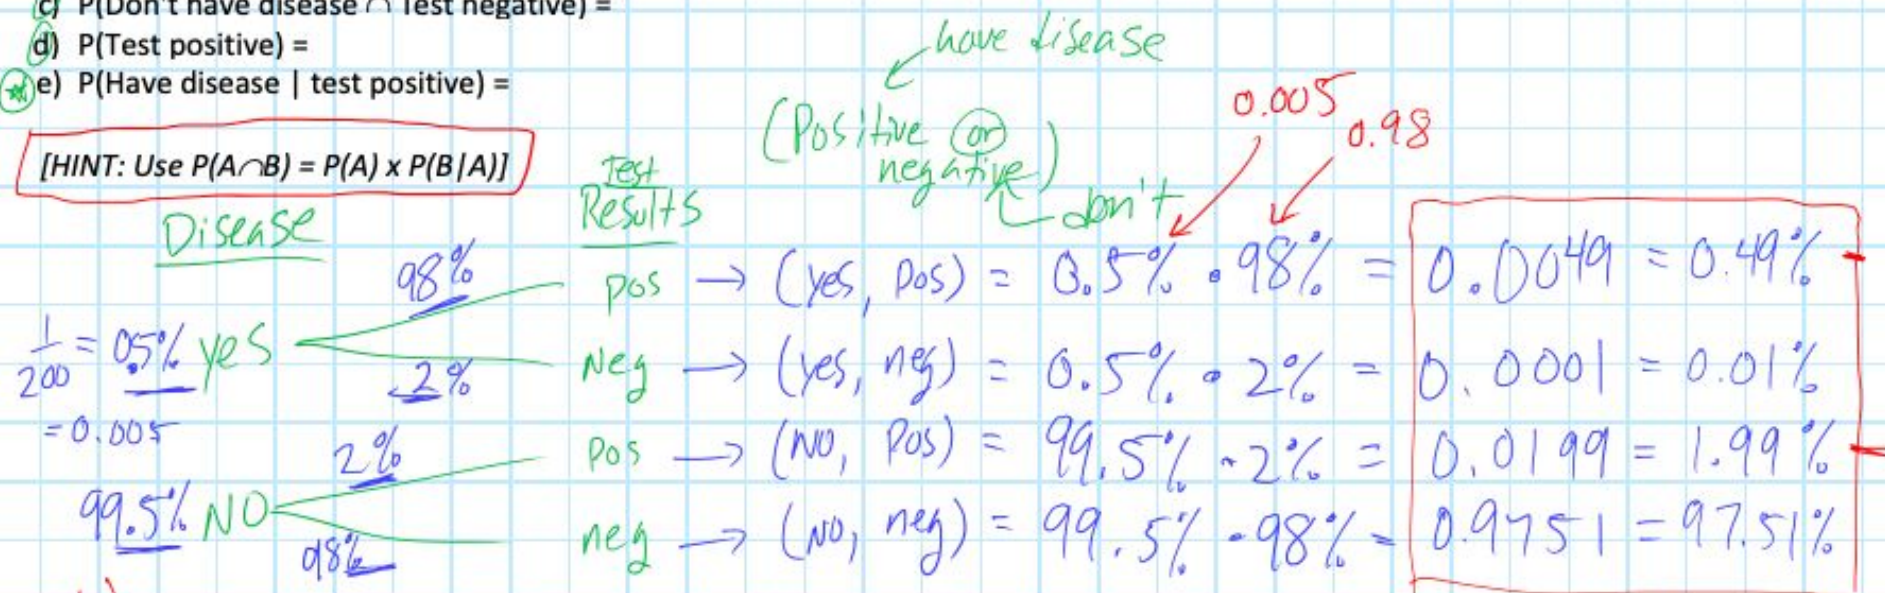 c) P(Don't have disease ∩ Test negative) =
d) P(Test positive) =
e) P(Have disease | test positive) =
[HINT: Use P(A∩B) = P(A) x P(B|A)]
have disease
(Positive or negative)
don't
0.005
0.98
Disease
Test Results
98%
pos → (yes, pos) = 0.5% · 98% = 0.0049 = 0.49%
1/200 = 0.5% yes
2%
Neg → (yes, neg) = 0.5% · 2% = 0.0001 = 0.01%
= 0.005
2%
pos → (NO, Pos) = 99.5% · 2% = 0.0199 = 1.99%
99.5% NO
98%
neg → (NO, neg) = 99.5% · 98% = 0.9751 = 97.51%